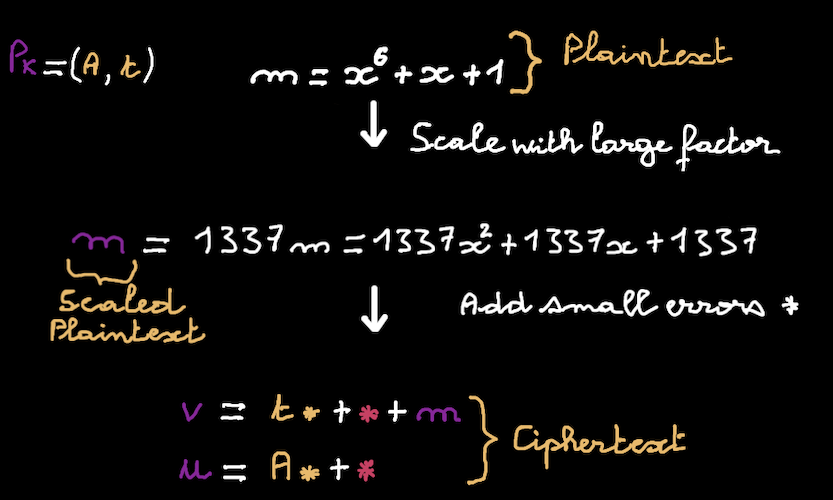 Pk=(A, t)
m = x⁶ + x + 1 } Plaintext
↓ Scale with large factor
m = 1337m = 1337x² + 1337x + 1337
Scaled
Plaintext
↓ Add small errors *
v = t* + * + m
u = A* + *
} Ciphertext